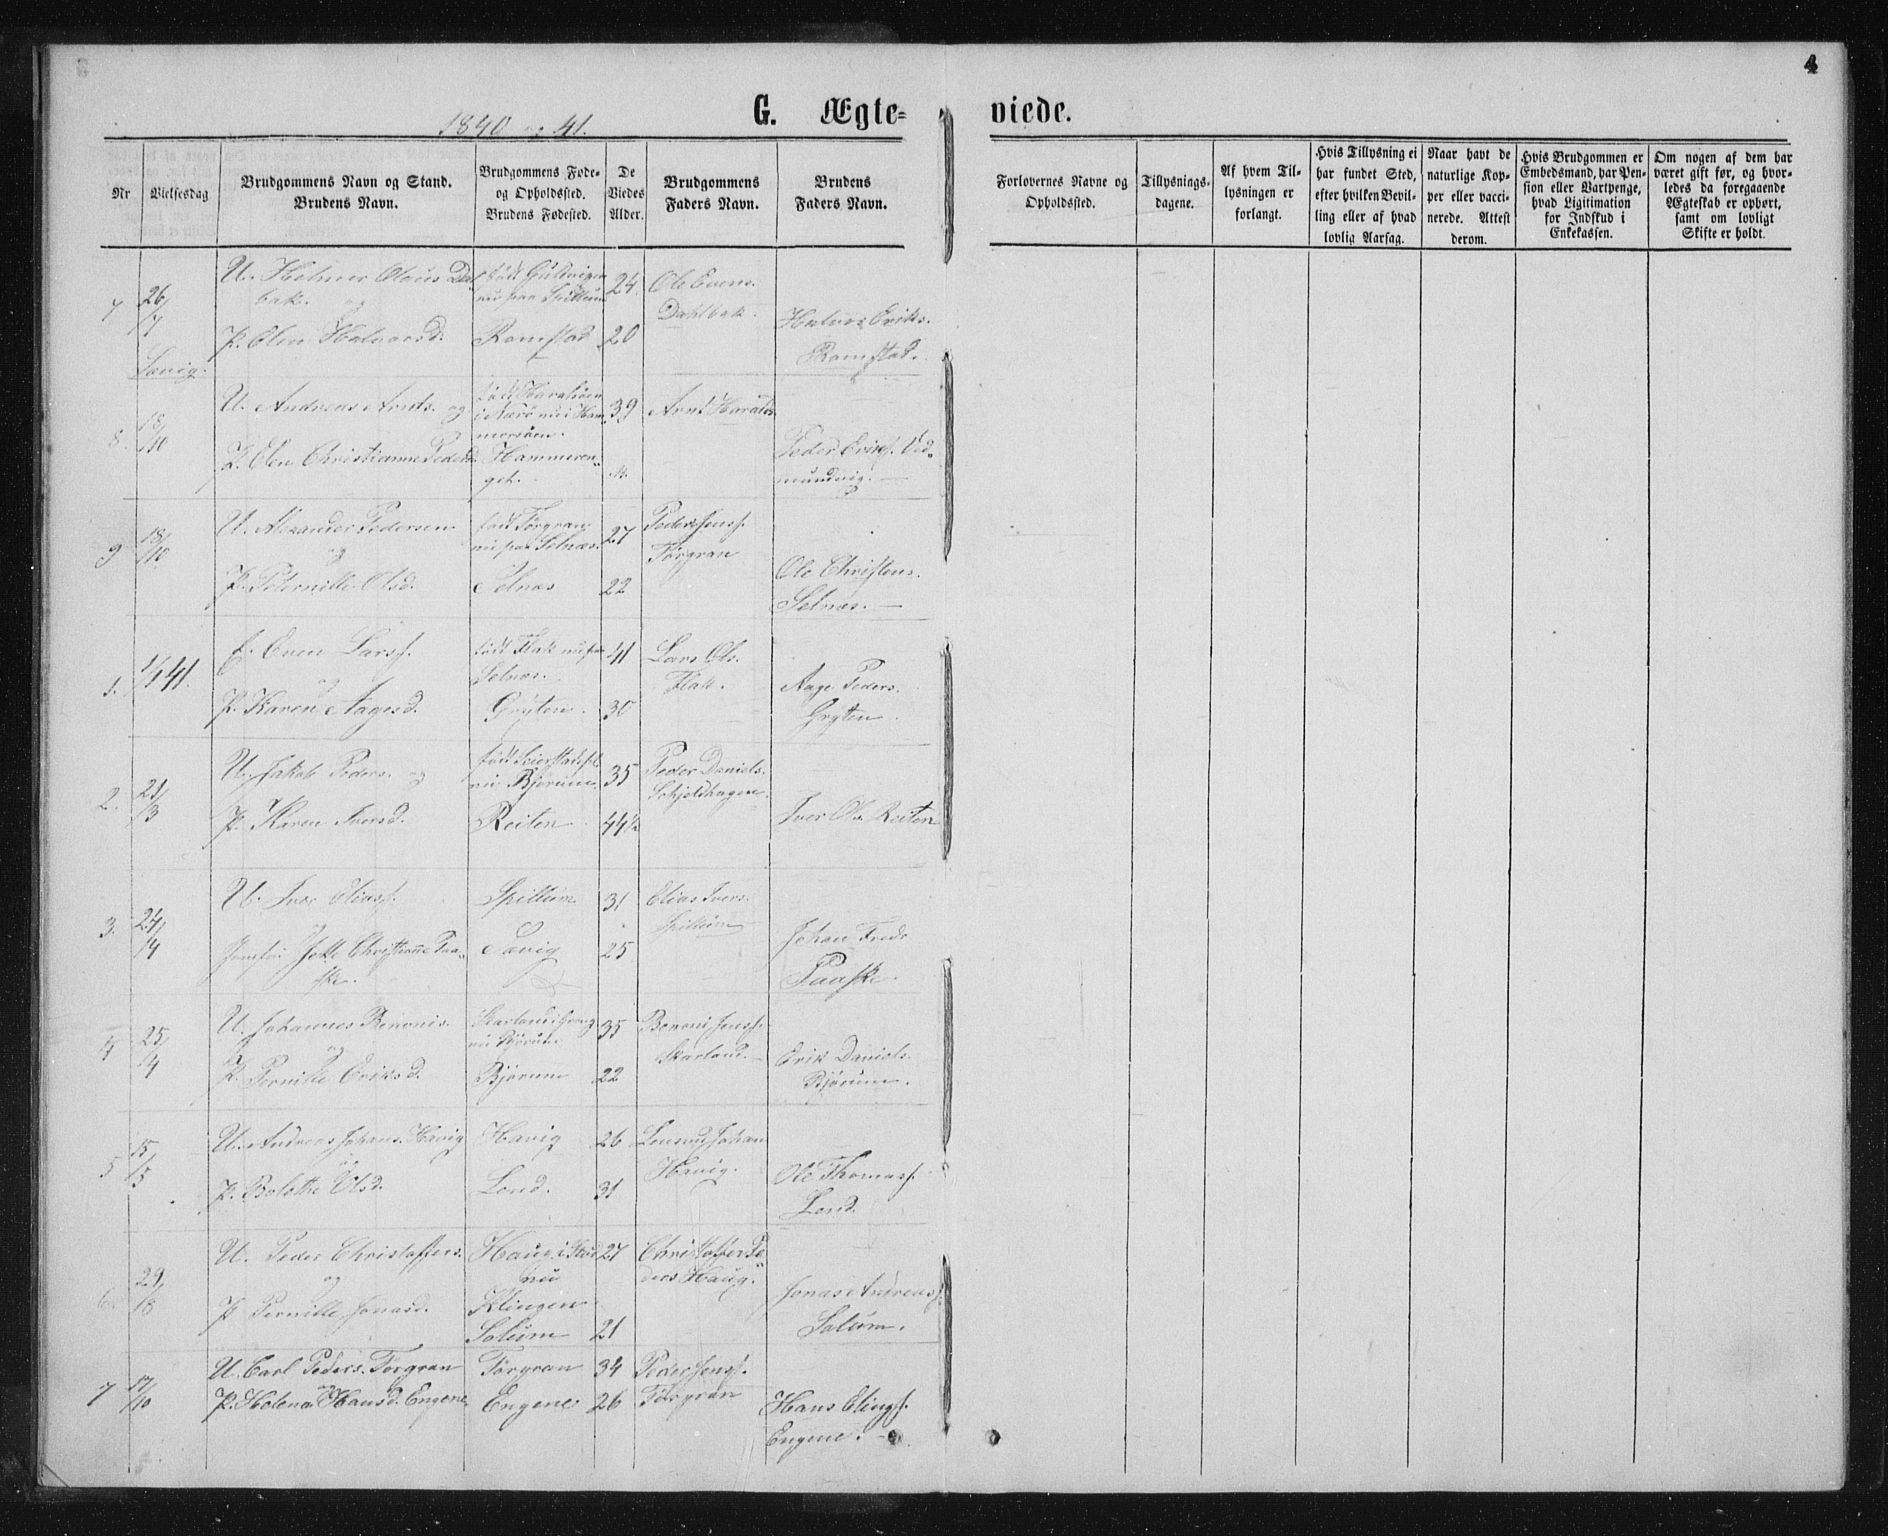 4
G. Ægte-
viede.
1840 og 41.
Nr
Vielsesdag
Brudgommens Navn og Stand.
Brudens Navn.
Brudgommens Føde-
og Opholdssted.
Brudens Fødested.
De
Viedes
Alder.
Brudgommens
Faders Navn.
Brudens
Faders Navn.
Forlovernes Navne og
Opholdssted.
Tillysnings-
dagene.
Af hvem Til-
lysningen er
forlangt.
Hvis Tillysning ei
har fundet Sted,
efter hvilken Bevil-
ling eller af hvad
lovlig Aarsag.
Naar havt de
naturlige Kop-
per eller vacci-
nerede. Attest
derom.
Hvis Brudgommen er
Embedsmand, har Pen-
sion eller Vartpenge,
hvad Ligitimation
for Indskud i
Enkekassen.
Om nogen af dem har
været gift før, og hvor-
ledes da foregaaende
Ægteskab er ophørt,
samt om lovligt
Skifte er holdt.
7
26/7
Sævig.
U. Helmer Olaus Dal
bak. og
P. Elen Halvorsd.
nu paa Spillum
Romstad
24.
20
Ole Evens.
Dahlbak.
Halvor Eriks.
Romstad.
8.
18/10
U. Andreas Arnts. og
P. Elen Christianne Pedersd.
i Nærö nu i Ham
mersöen.
Hammeren-
get.
39
Arnt Haralds.
Peder Eriks. Ved-
mundvig.
9
18/10
U. Alexander Pedersen
og
P. Peternille Olsd.
född Törgran
nu paa Selnæs.
Selnæs
27
22
Peder Jenss.
Törgran
Ole Christens.
Selnæs.
1.
1/1 41.
E. Even Larss.
og
P. Karen Aagesd.
född Flak nu paa
Selnæs.
Gryten.
41
30
Lars Ols.
Flak.
Aage Peders.
Gryten.
2.
21/3
U. Jakob Peders. og
P. Karen Iversd.
nu Bjørum.
Reiten
35
44½
Peder Daniels.
Schjeldhagen.
Iver Ols. Reiten
3.
24/4
U. Iver Eliass.
og
Jomfru Jette Christianne Paa-
ske.
Spillum
Savig
31
25
Elias Ivers.
Spillum
Johan Fredr
Paaske.
4
25/4
U. Johannes Benonis.
og
P. Pernille Eriksd.
nu Bjørum
Bjørum
35
22
Benoni Jenss.
Skarland.
Erik Daniels.
Bjørum.
5
15/5
U. Andreas Johans. Havig
P. Bolethe Olsd.
Havig
Lond.
26
31
Havig.
Ole Thomass.
Lond.
6
29/8
U. Peder Christoffers.
og
P. Pernille Jonasd.
nu
Klingen
Solum
27
21
Christoffer Pe-
ders Haug.
Jonas Andreass.
Solum.
7
17/10
U. Carl Peders. Törgran
og
P. Helena Hansd. Engene
Törgran
Engene
34
26
Peder Jenss.
Törgran
Hans Elings.
Engene.